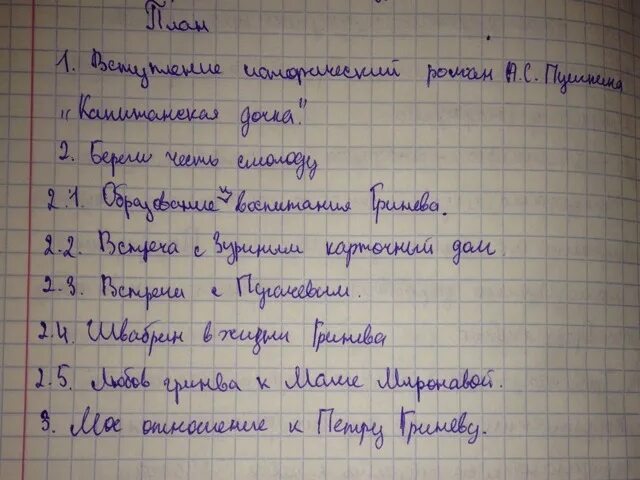 План
1. Вступление исторический роман А.С. Пушкина
"Капитанская дочка."
2. Береги честь смолоду
2.1. Образование и воспитания Гринева.
2.2. Встреча с Зуриным карточный дом.
2.3. Встреча с Пугачевим.
2.4. Швабрин в жизни Гринева
2.5. Любов гринва к Маше Миронавой.
3. Мое отношение к Петру Гриневу.